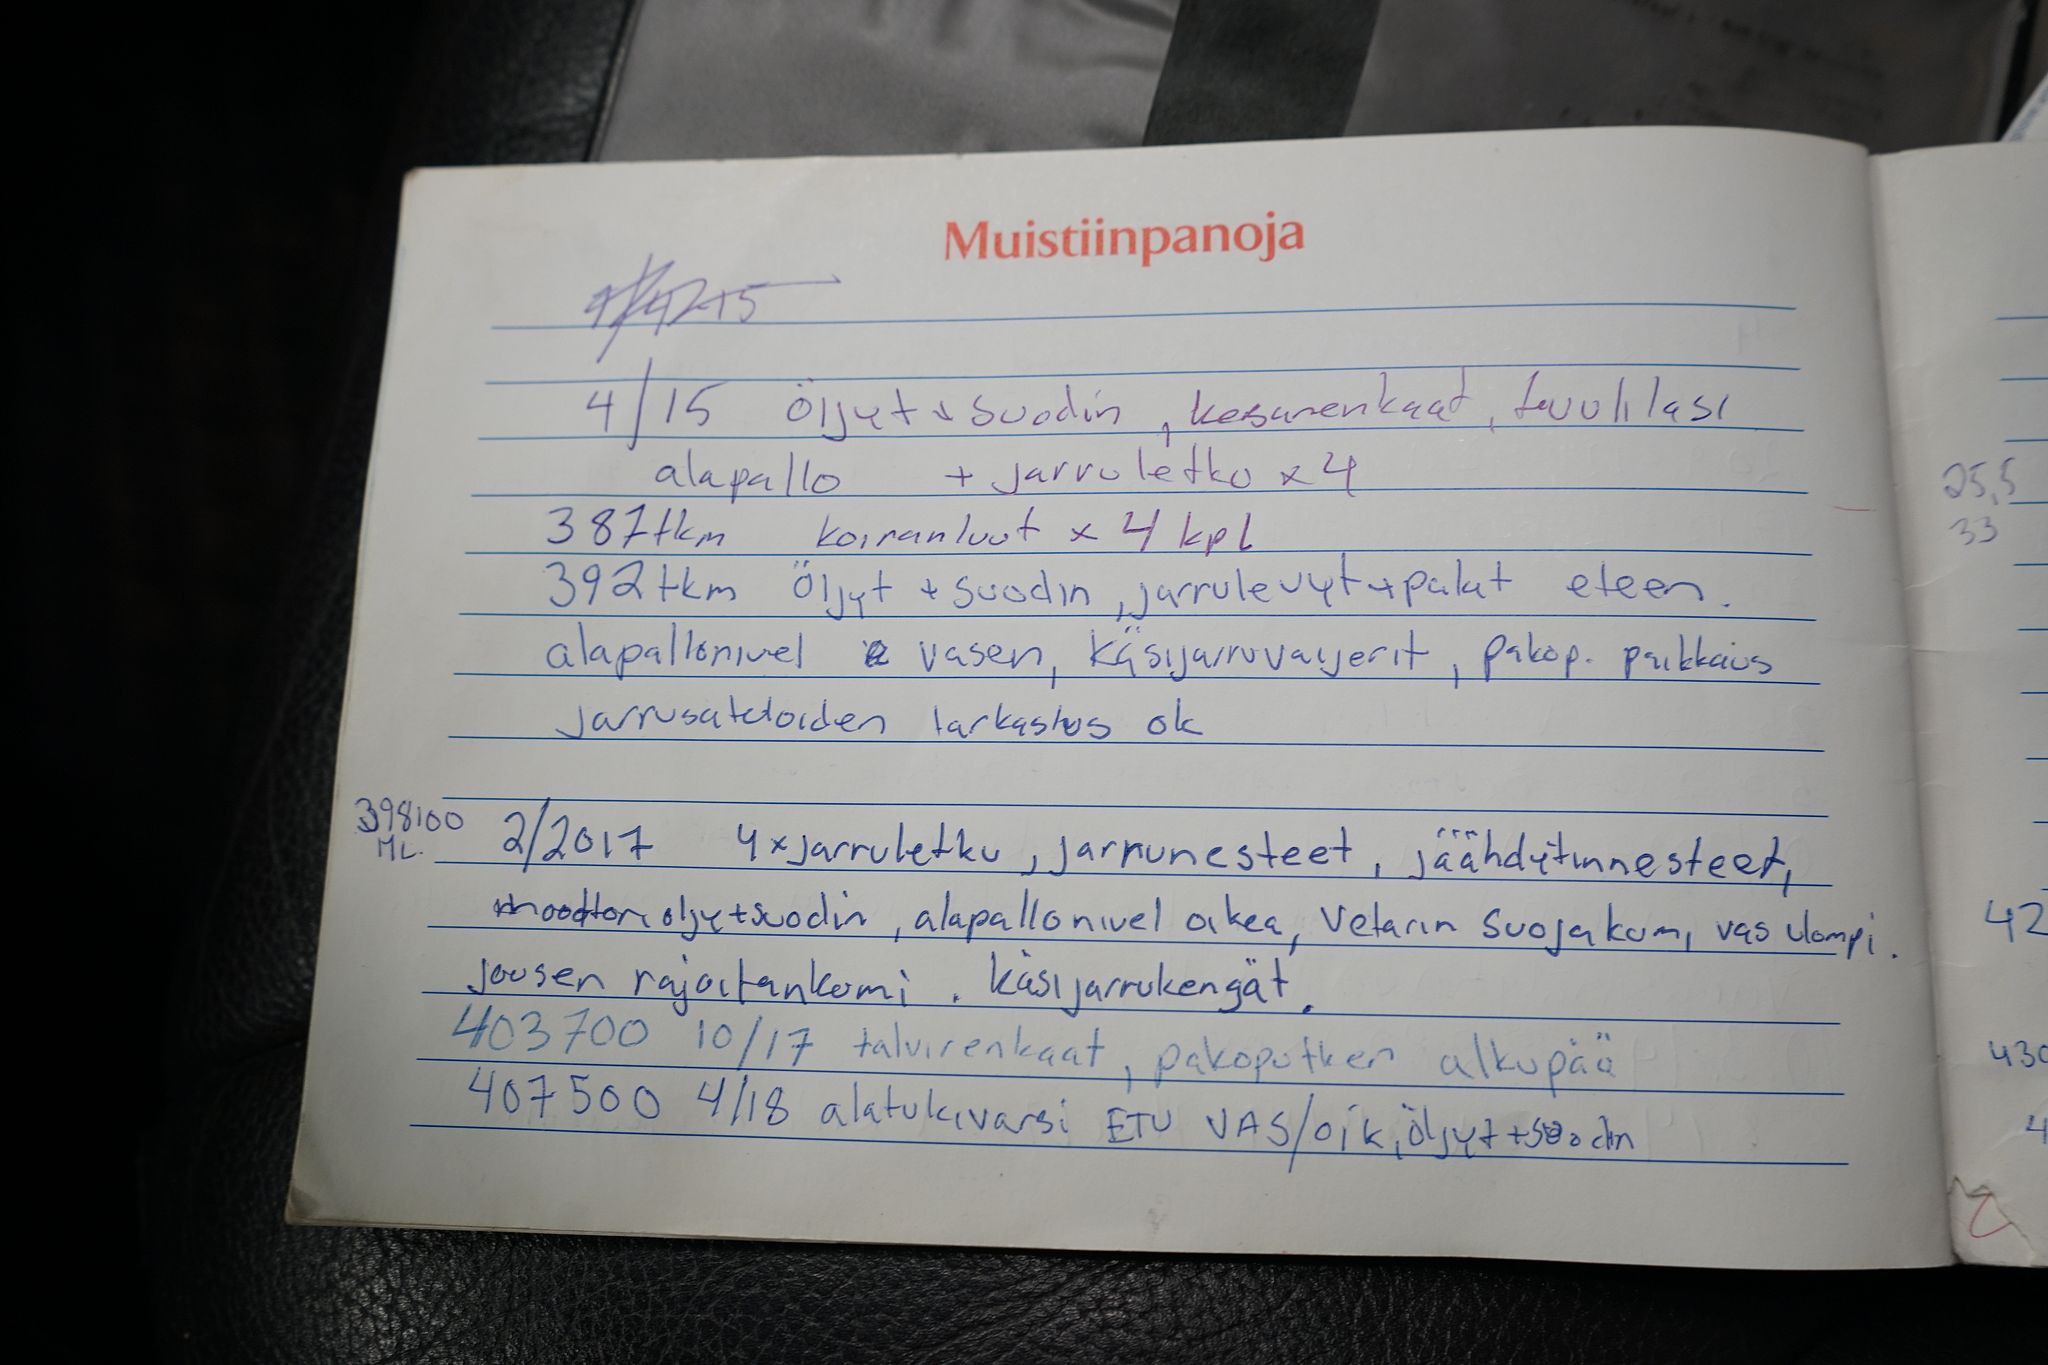 Muistiinpanoja
4/15 Öljyt + suodin, kesärenkaat, tuulilasi
alapallo + jarruletku x 4
387tkm koiranluut x 4 kpl
392tkm Öljyt + suodin, jarrulevyt + palat eteen.
alapallonivel vasen, käsijarruvaijerit, pakop. paikkaus
jarrusatuloiden tarkastus ok
398100
ML.
2/2017 4 x jarruletku, jarrunesteet, jäähdytinnesteet,
moottoriöljyt+suodin, alapallonivel oikea, vetarin suojakumi vas ulompi.
jousen rajoitankumi. Käsijarrukengät.
403700 10/17 talvirenkaat, pakoputken alkupää
407500 4/18 alatukivarsi ETU VAS/oik, öljyt+suodin
25,5
33
42
430
4